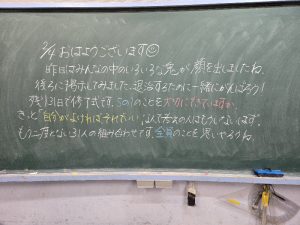 3/4 おはようございます☺
昨日はみんなの中のいろいろな鬼が顔を出しましたね。
後ろに掲示してみました。退治するために一緒にがんばろう!
残り31日で修了式です。5の1のことを大切にできていますか。
きっと"自分がよければそれでいい"なんて考えの人はもういないはず。
もう二度とない31人の組み合わせです。全員のことを思いやろうね。